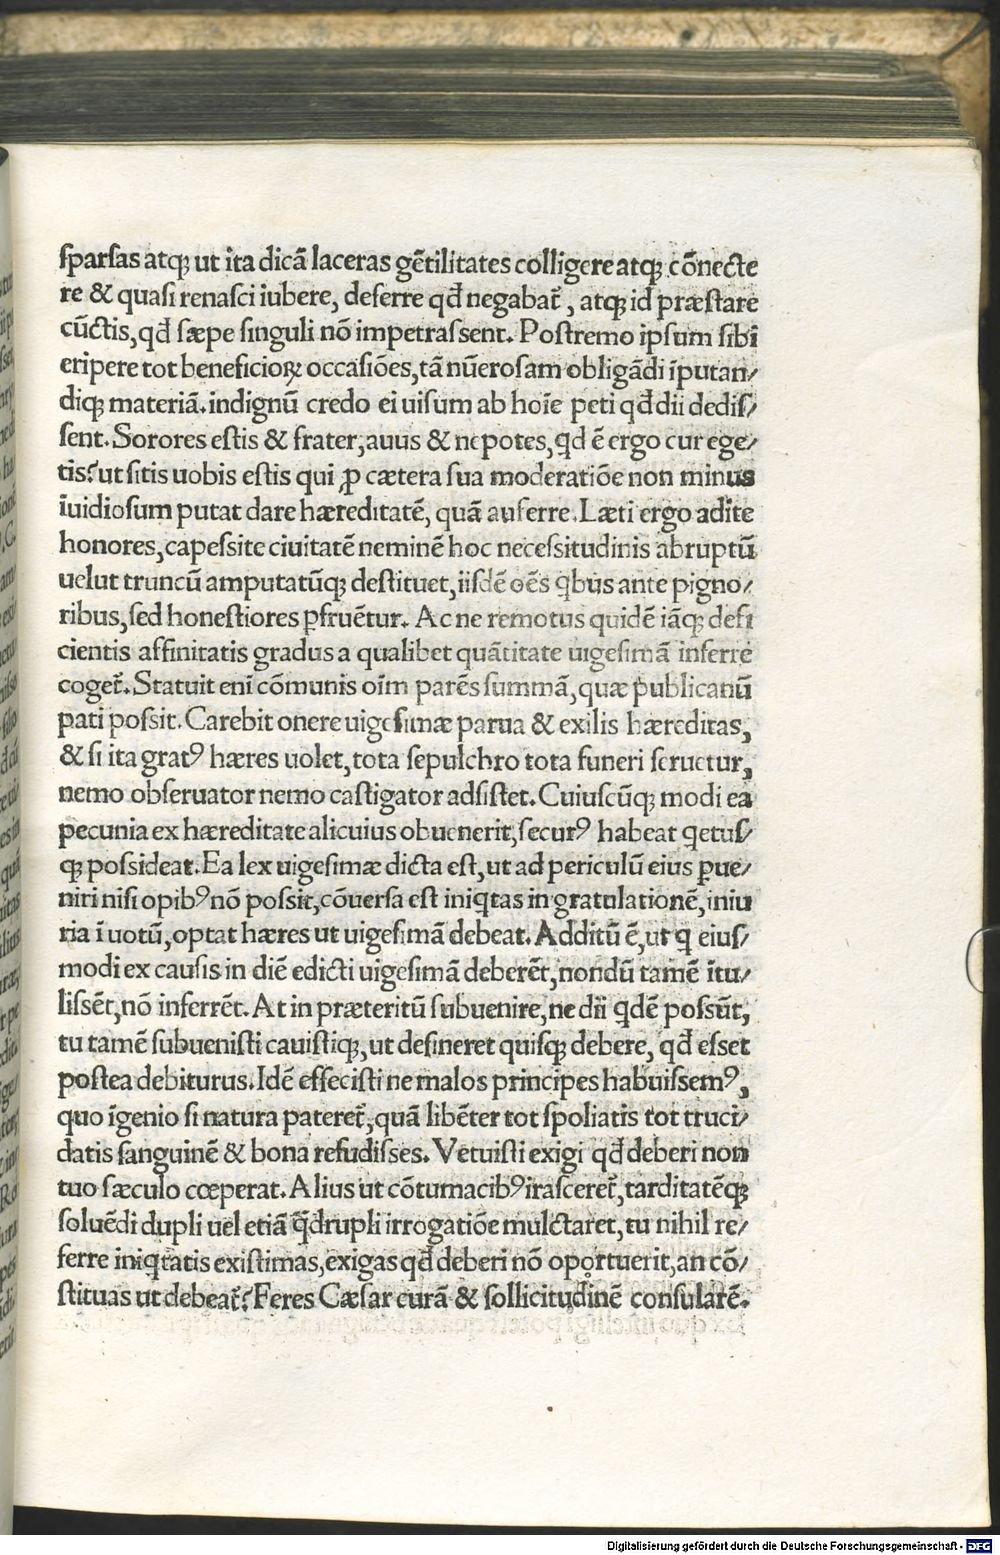 sparsas atqꝫ ut ita dicā laceras gētilitates colligere atqꝫ cōnecte
re & quasi renasci iubere, deferre qđ negabat̄, atqꝫ id præstare
cūctis, qđ sæpe singuli nō impetrassent. Postremo ipsum sibi
eripere tot beneficioꝝ occasiōes, tā nūerosam obligādi īputan/
diqꝫ materiā. indignū credo ei uisum ab hoīe peti qđ dii dedis/
sent. Sorores estis & frater, auus & nepotes, qđ ē ergo cur ege/
tis? ut sitis uobis estis qui ꝓ cætera sua moderatiōe non minus
īuidiosum putat dare hæreditatē, quā auferre. Læti ergo adite
honores, capessite ciuitatē neminē hoc necessitudinis abruptū
uelut truncū amputatūqꝫ destituet, iisdē oēs qbus ante pigno/
ribus, sed honestiores ꝑfruētur. Ac ne remotus quidē iāqꝫ defi
cientis affinitatis gradus a qualibet quātitate uigesimā inferre
coget̄. Statuit eni cōmunis oīm parēs summā, quæ publicanū
pati possit. Carebit onere uigesimæ parua & exilis hæreditas,
& si ita gratꝰ hæres uolet, tota sepulchro tota funeri seruetur,
nemo obseruator nemo castigator adsistet. Cuiuscūqꝫ modi ea
pecunia ex hæreditate alicuius obuenerit, securꝰ habeat qetus/
qꝫ possideat. Ea lex uigesimæ dicta est, ut ad periculū eius ꝑue/
niri nisi opibꝰ nō possit, cōuersa est iniqtas in gratulationē, iniu
ria ī uotū, optat hæres ut uigesimā debeat. Additū ē, ut q eius/
modi ex causis in diē edicti uigesimā deberēt, nondū tamē ītu/
lissēt, nō inferrēt. At in præteritū subuenire, ne dii qdē possūt,
tu tamē subuenisti cauistiqꝫ, ut desineret quisqꝫ debere, qđ esset
postea debiturus. Idē effecisti ne malos principes habuissemꝰ,
quo īgenio si natura pateret̄, quā libēter tot spoliatis tot truci/
datis sanguinē & bona refudisses. Vetuisti exigi qđ deberi non
tuo sæculo cœperat. Alius ut cōtumacibꝰ irasceret̄, tarditatēqꝫ
soluēdi dupli uel etiā q̄drupli irrogatiōe mulctaret, tu nihil re/
ferre iniqtatis existimas, exigas qđ deberi nō oportuerit, an cō/
stituas ut debeat̄? Feres Cæsar curā & sollicitudinē consularē.
Digitalisierung gefördert durch die Deutsche Forschungsgemeinschaft - DFG